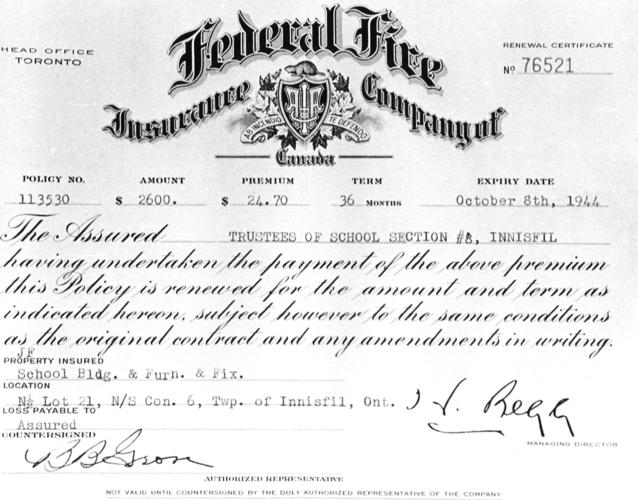 Federal Fire
HEAD OFFICE
TORONTO
RENEWAL CERTIFICATE
No 76521
Insurance Company of
AB INCENDIO TE DEFENDO
Canada
POLICY NO. AMOUNT PREMIUM TERM EXPIRY DATE
113530 $ 2600. $ 24.70 36 MONTHS October 8th, 1944
The Assured TRUSTEES OF SCHOOL SECTION #8, INNISFIL
having undertaken the payment of the above premium
this Policy is renewed for the amount and term as
indicated hereon, subject however to the same conditions
as the original contract and any amendments in writing.
JF
PROPERTY INSURED
School Bldg. & Furn. & Fix.
LOCATION
N½ Lot 21, N/S Con. 6, Twp. of Innisfil, Ont.
LOSS PAYABLE TO
Assured
COUNTERSIGNED
MANAGING DIRECTOR
AUTHORIZED REPRESENTATIVE
NOT VALID UNTIL COUNTERSIGNED BY THE DULY AUTHORIZED REPRESENTATIVE OF THE COMPANY